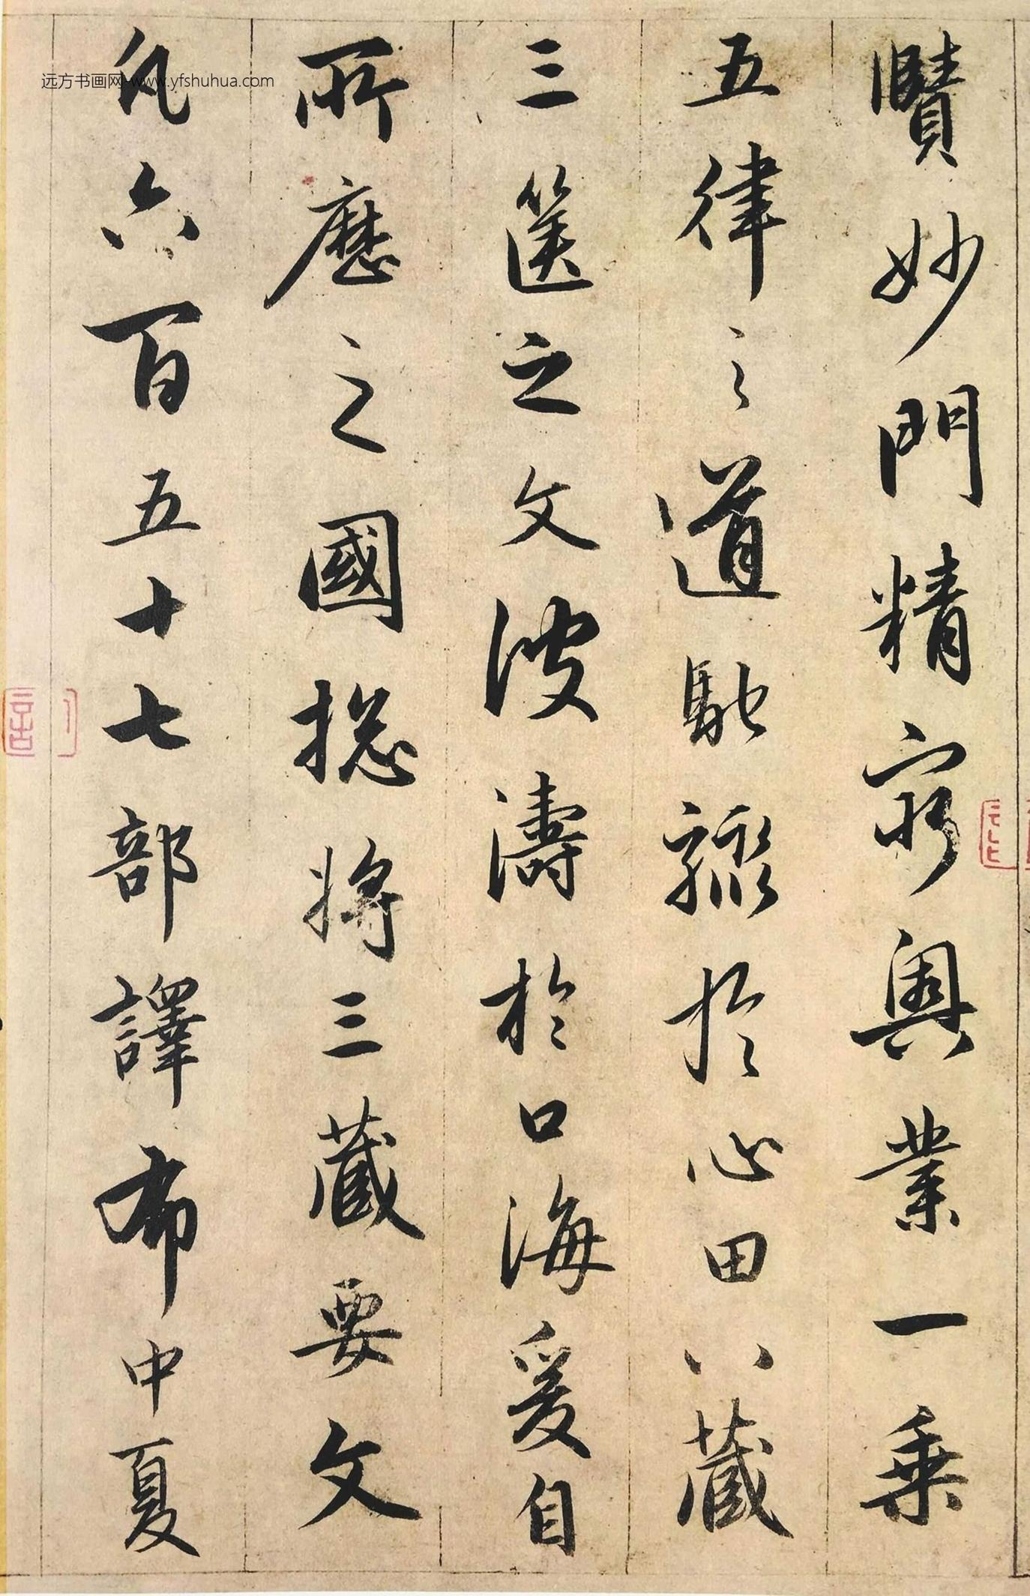 賾妙門精窮奧業一乘
五律之道馳驟於心田八藏
三篋之文波濤於口海爰自
所歷之國揔將三藏要文
凡六百五十七部譯布中夏
远方书画网-www.yfshuhua.com